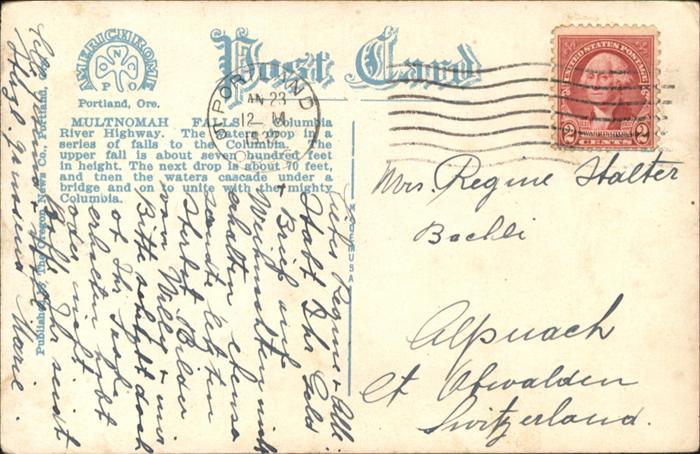 AMERICHROME
N
P O
Portland, Ore.
Post Card
MULTNOMAH FALLS Columbia
River Highway. The waters drop in a
series of falls to the Columbia. The
upper fall is about seven hundred feet
in height. The next drop is about 70 feet,
and then the waters cascade under a
bridge and on to unite with the mighty
Columbia.
Published by The Oregon News Co., Portland, Ore.
MADE IN USA
PORTLAND
JAN 23
12 M
UNITED STATES POSTAGE
2 WASHINGTON 2
CENTS
Mrs. Regine Halter
Bachli
Alpnach
Ct Obwalden
Switzerland.
Regine &
Habt Ihr Geld
& Brief auf
Weihnachten
erhalten
sandte letzten
Herbst Bilder
von Willy & mir
Bitte schreibt doch
ob Ihr
erhalten habt
oder nicht
Marie.